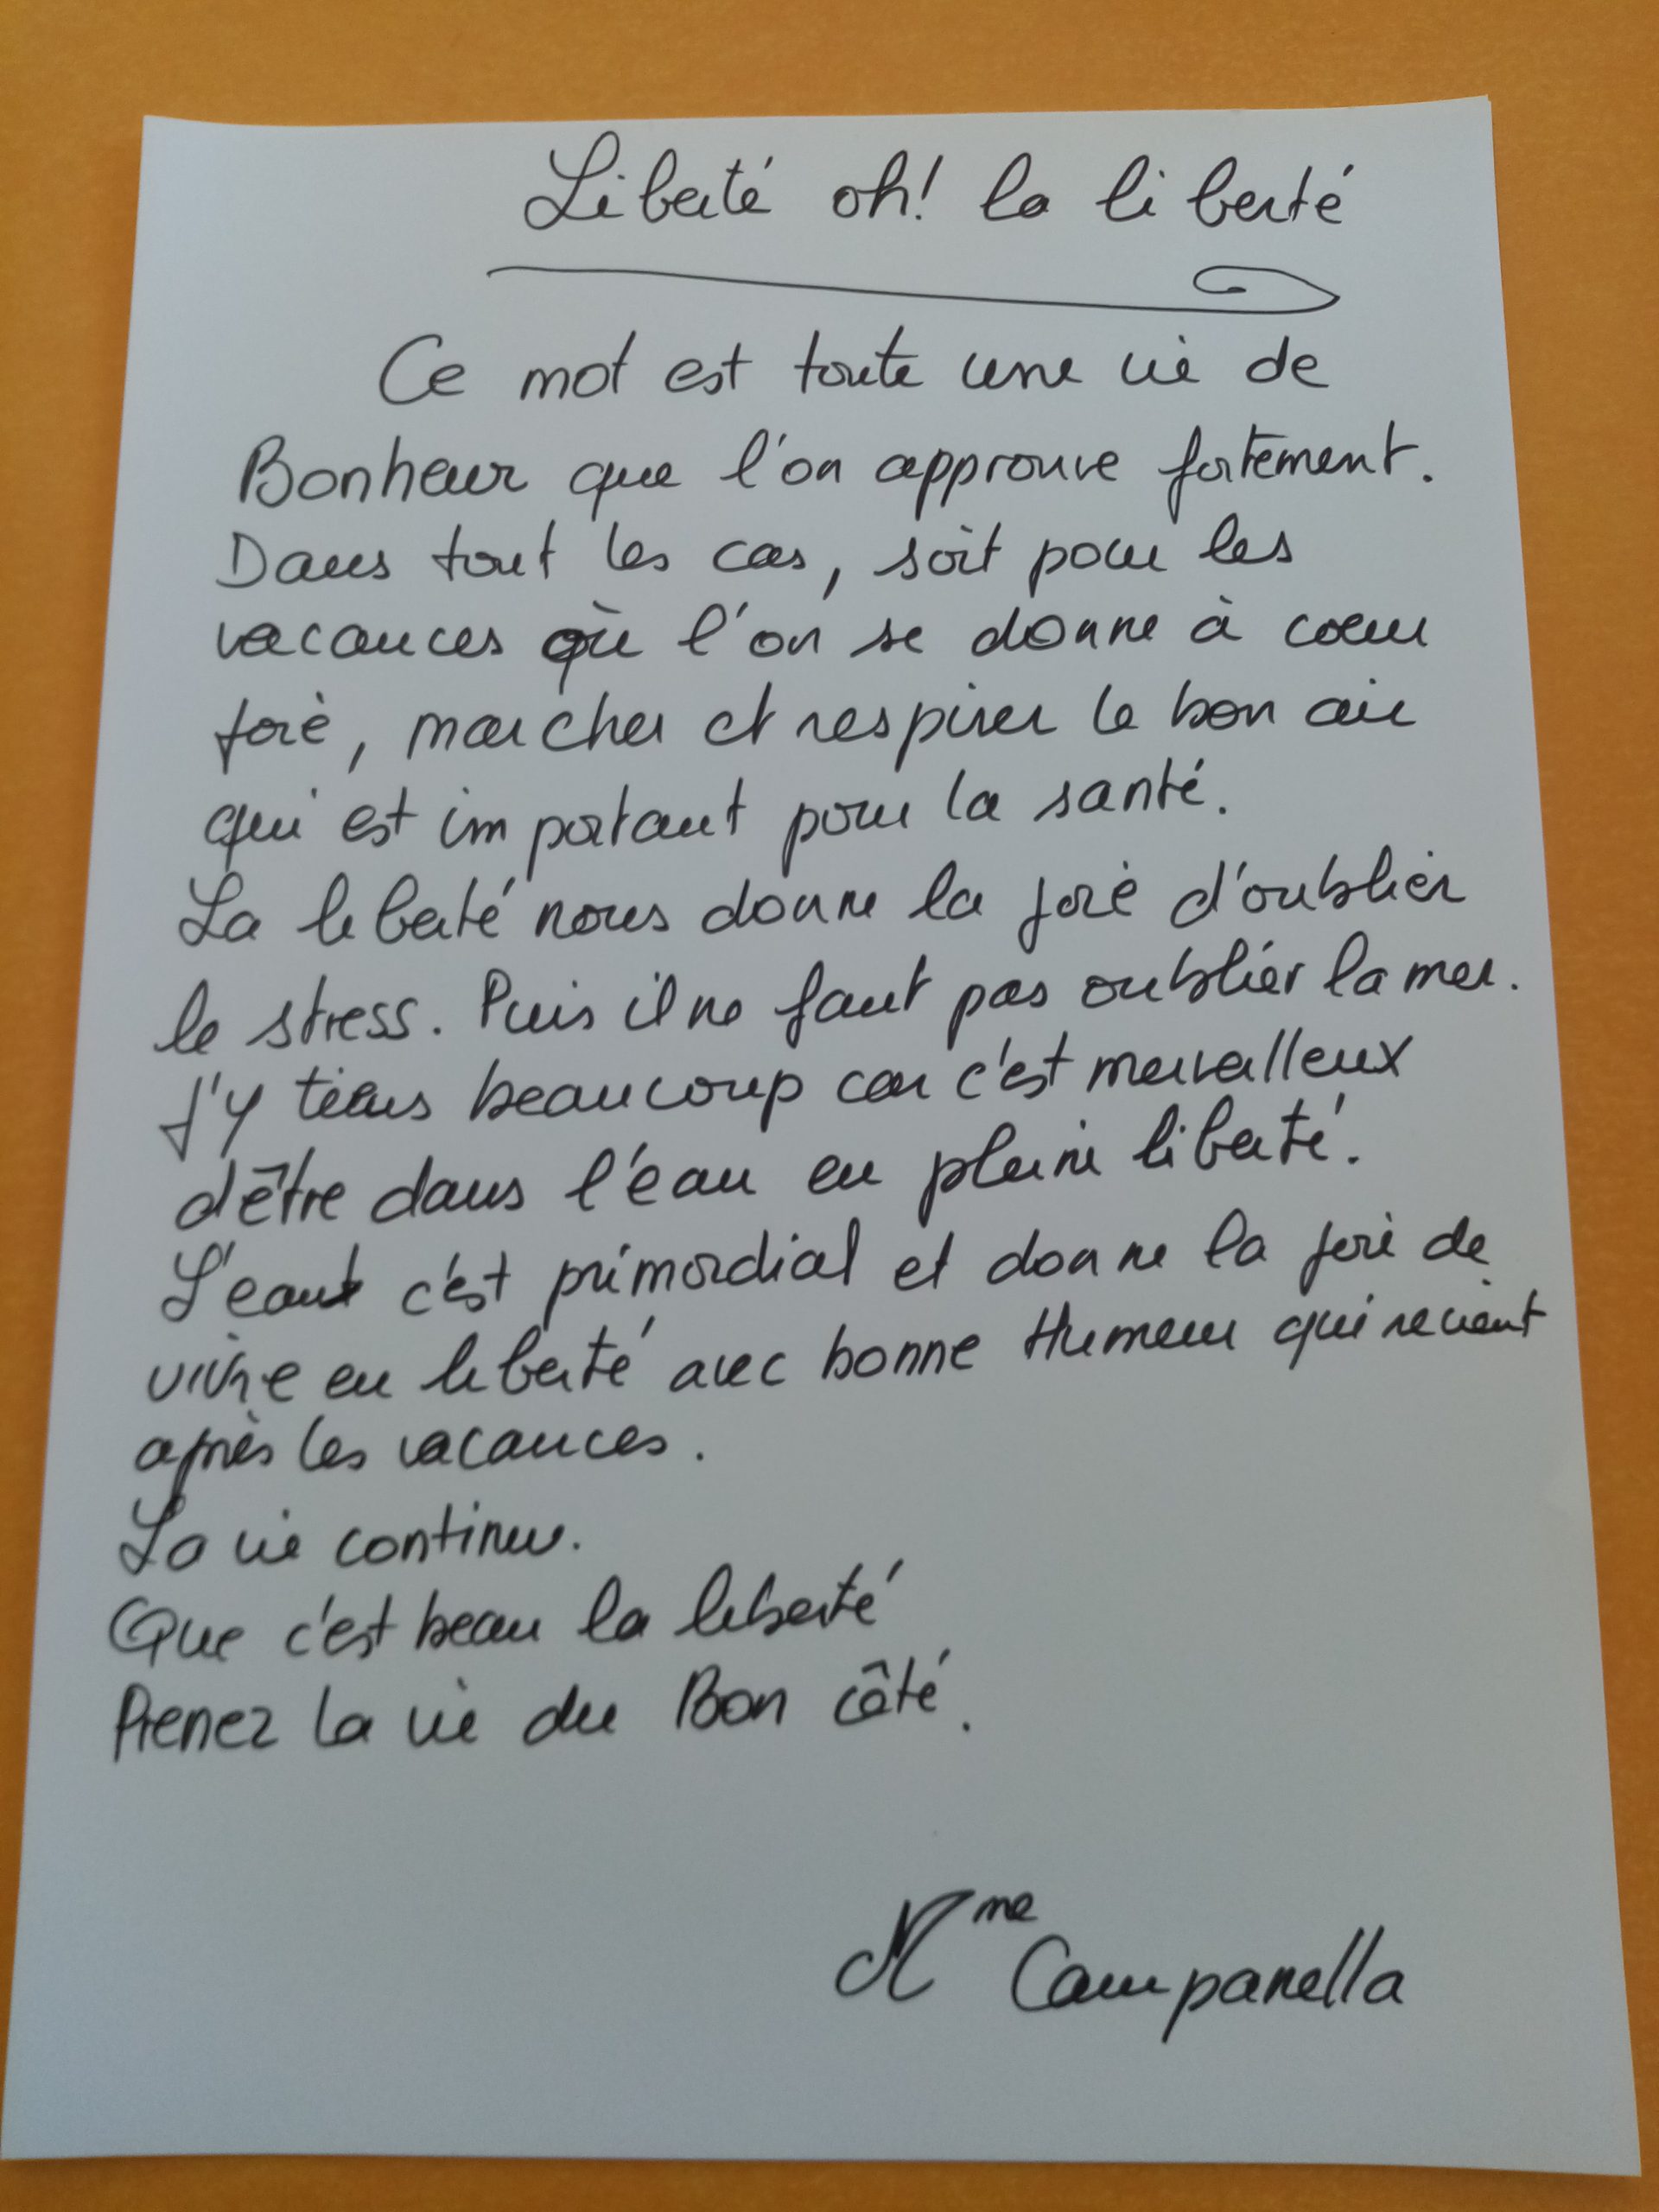 Liberté oh! la liberté
Ce mot est toute une vie de
Bonheur que l'on approuve fortement.
Dans tout les cas, soit pour les
vacances où l'on se donne à coeur
joie, marcher et respirer le bon air
qui est important pour la santé.
La liberté nous donne la joie d'oublier
le stress. Puis il ne faut pas oublier la mer.
J'y tiens beaucoup car c'est merveilleux
d'être dans l'eau en pleine liberté.
L'eau c'est primordial et donne la joie de
vivre en liberté avec bonne Humeur qui revient
après les vacances.
La vie continue.
Que c'est beau la liberté
Prenez la vie du Bon côté.
Mme Campanella